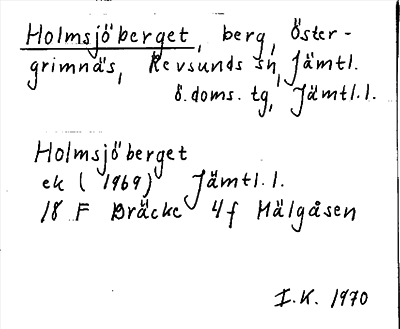 Holmsjöberget, berg, Öster-
grimnäs, Revsunds sn, Jämtl.
ö. doms. tg, Jämtl.l.
Holmsjöberget
ek (1969) Jämtl.l.
18 F Bräcke 4f Mälgåsen
I.K. 1970